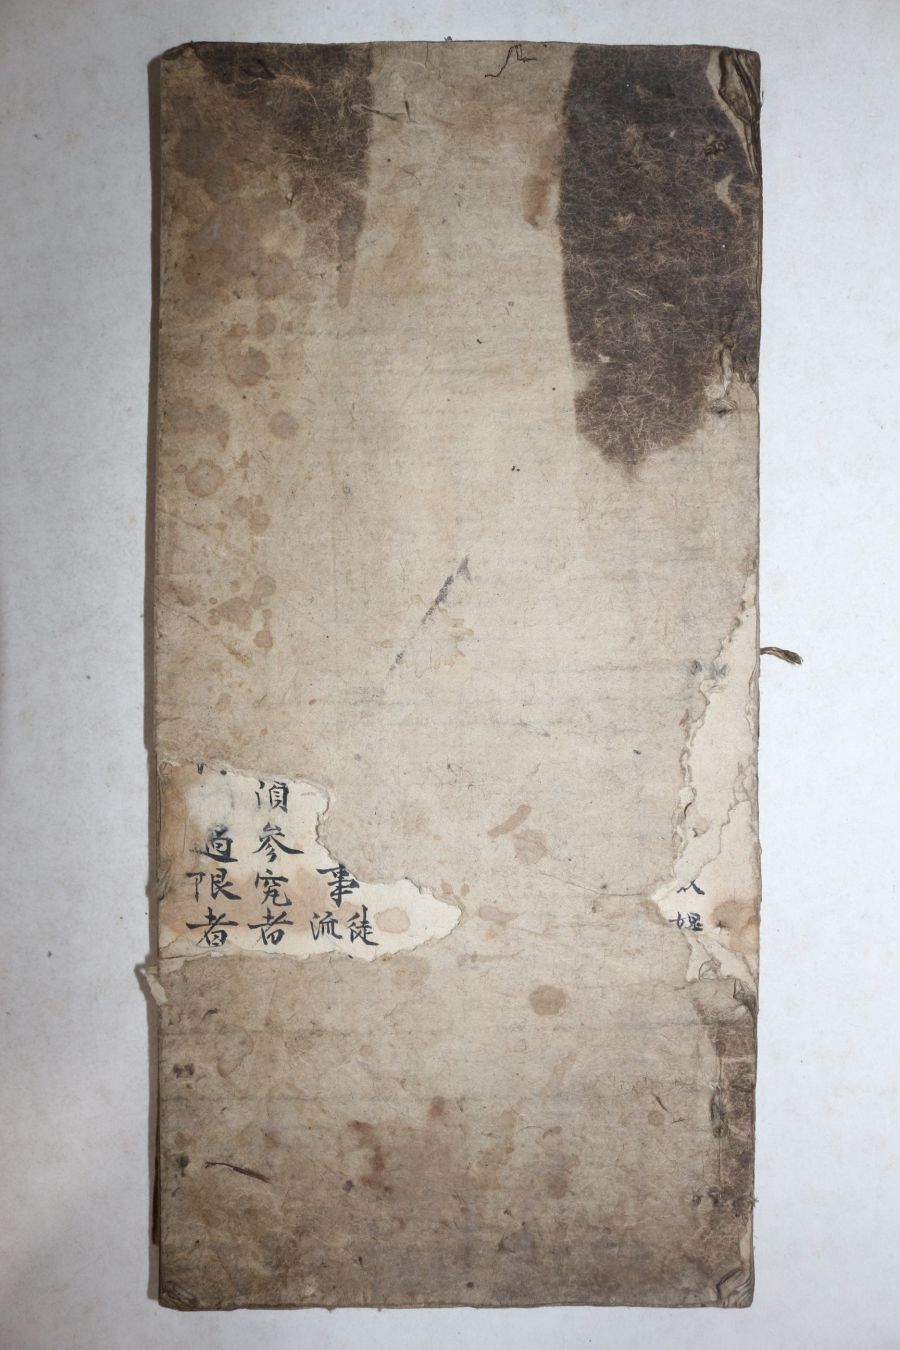 媿
事
流徒
須參究者
過限者